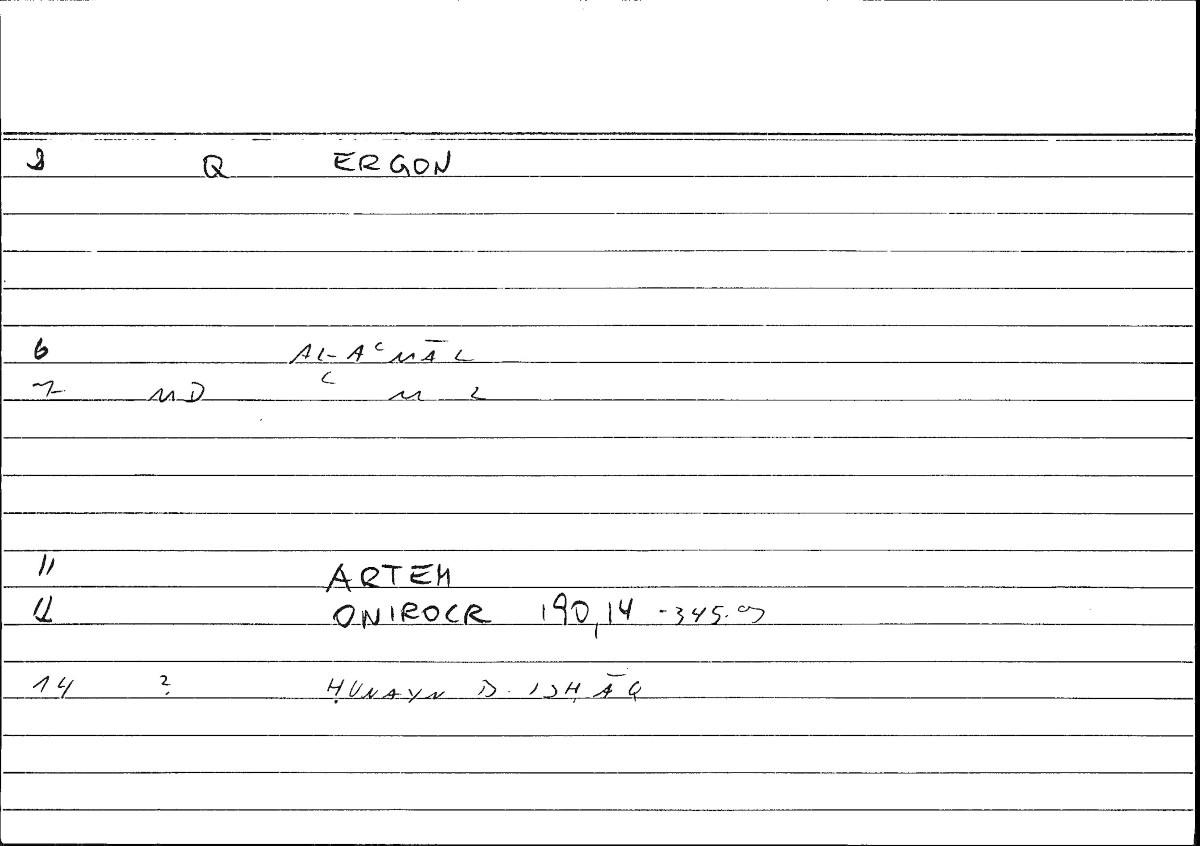 Q ERGON
6 AL-AʿMĀL
7 MD ʿ M L
11 ARTEM
12 ONIROCR 190,14 -345.9
14 ? ḤUNAYN B. ISḤĀQ